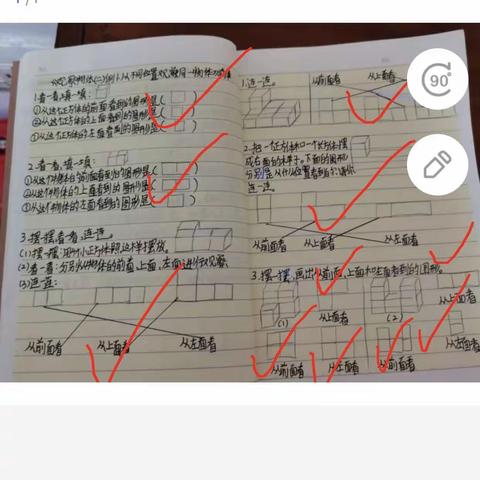 1.看一看,填一填:
①从这个正方体的前面看到的图形是( )
②从这个正方体的上面看到的图形是( )
③从这个正方体的左面看到的图形是( )
2.看一看,填一填:
①从这个物体的前面看到的图形是( )
②从这个物体的上面看到的图形是( )
③从这个物体的左面看到的图形是( )
3.摆一摆,看一看,连一连。
(1)摆一摆:用 小正方体照这样子摆放。
(2)看一看:分别从物体的前面,上面,左面进行观察
(3)连一连:
从前面看 从上面看 从左面看
1.连一连。
从前面看 从上面看
2.把一个正方体和一个长方体摆
成右面的样子。下面的图形
分别是从什么位置看到的?请你
连一连。
从前面看 从上面看 从左面看
3.摆一摆,画出从前面,上面和左面看到的图形。
(1) 从上面看 (2) 从上面看
从前面看 从左面看 从前面看 从左面看
90